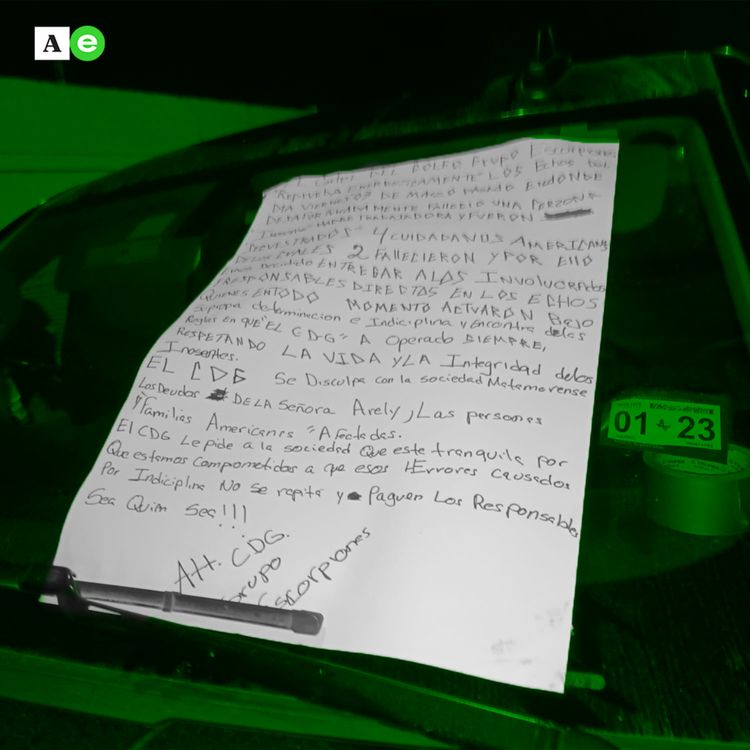 A e
El Cartel DEL GOLFO Grupo Escorpiones
Reprueba ENERGICAMENTE LOS Echos del
DIA VIERNES 03 DE MARZO PASADO EN DONDE
DESAFORTUNADAMENTE FALLECIO UNA PERZONA
Inocente MADRE TRABAJADORA y FUERON
SECUESTRADOS 4 CUIDADANOS AMERICANOS
DE LOS CUALES 2 FALLECIERON Y POR ELLO
Emos Decidido ENTREGAR ALOS Involucrados
RESPONSABLES DIRECTOS EN LOS ECHOS
QUIENES ENTODO MOMENTO ACTUARON BAJO
su propia determinacion e Indiciplina y Encontra delas
Reglas En que "EL CDG" A Operado SIEMPRE,
RESPETANDO LA VIDA y LA Integridad delos
Inosentes.
EL CDG Se Disculpa con la sociedad Matamorense
Los Deudos DE LA Señora Arely, y Las personas
y Familias Americanas "Afectadas.
El CDG Le pide a la sociedad Que este tranquila por
Que estamos Comprometidos a que esos "Errores causados
Por Indiciplina No se repita y Paguen Los Responsables
Sea Quim Sea!!!
Att. CDG.
Grupo
Escorpiones
01 23